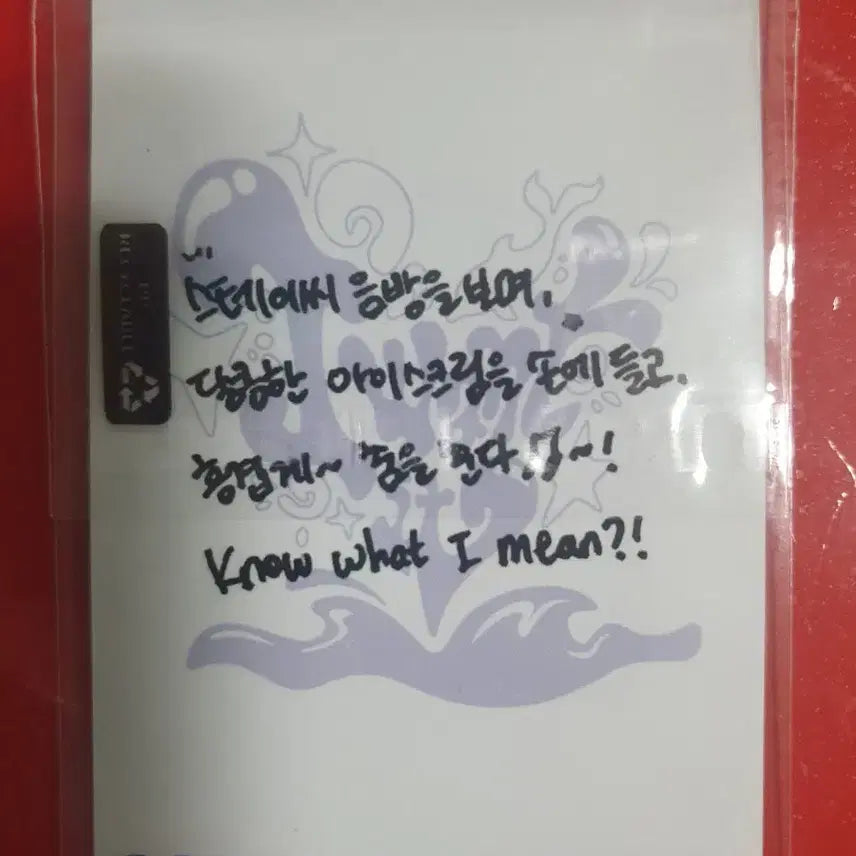 스테이씨 음방을 보며,
달콤한 아이스크림을 손에 들고,
흥겹게~ 춤을 춘다♪~!
Know what I mean?!
PP
RECYCLABLE